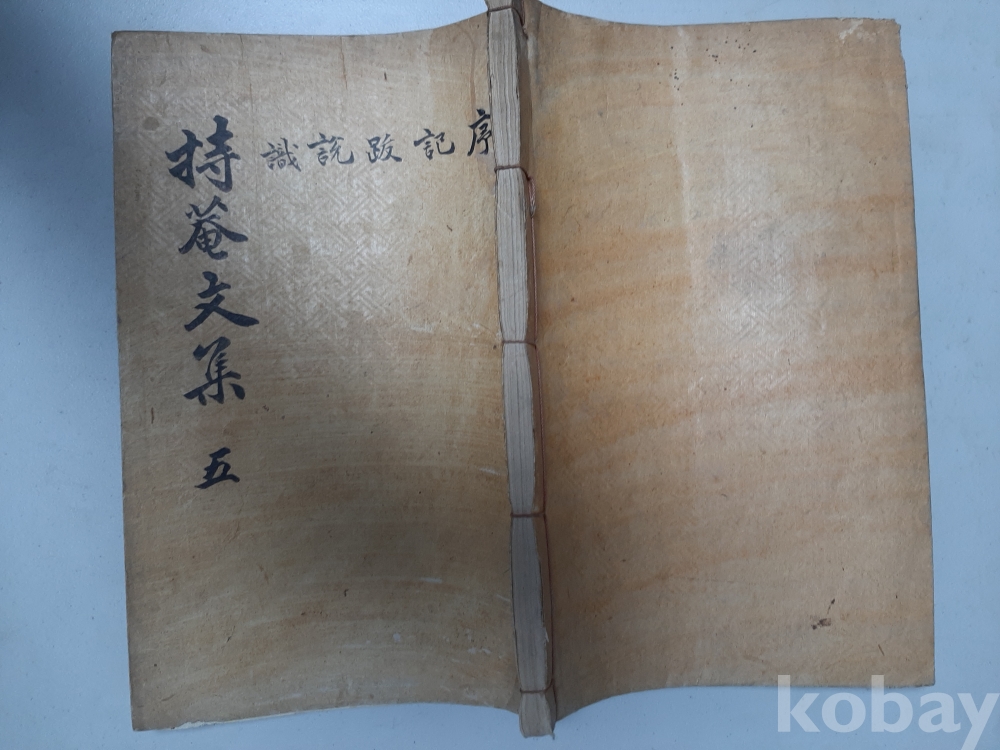 序 記 跋 說 識
持菴文集 五
kobay